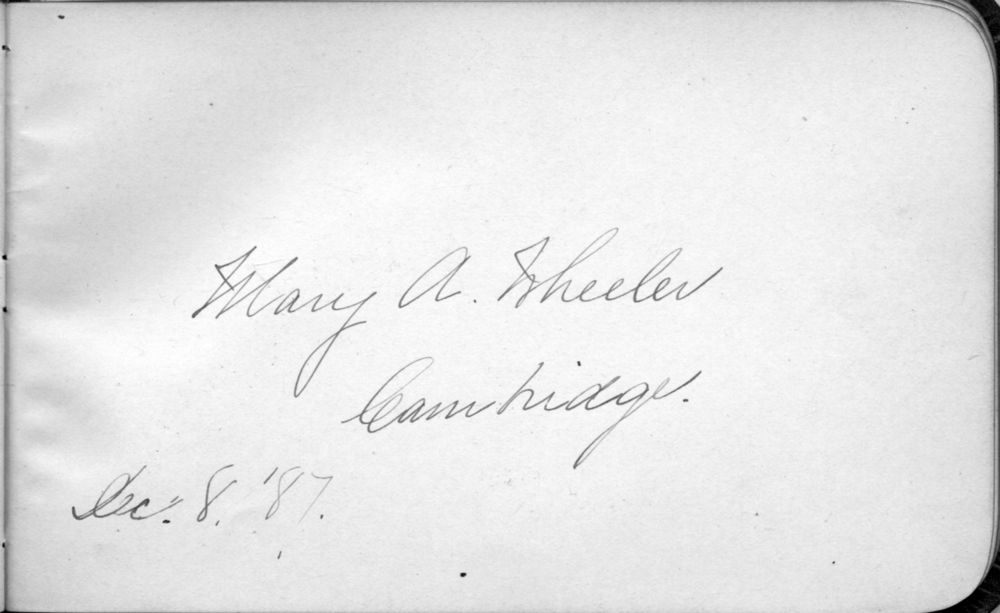 Mary A. Wheeler
Cambridge.
Dec. 8, '87.